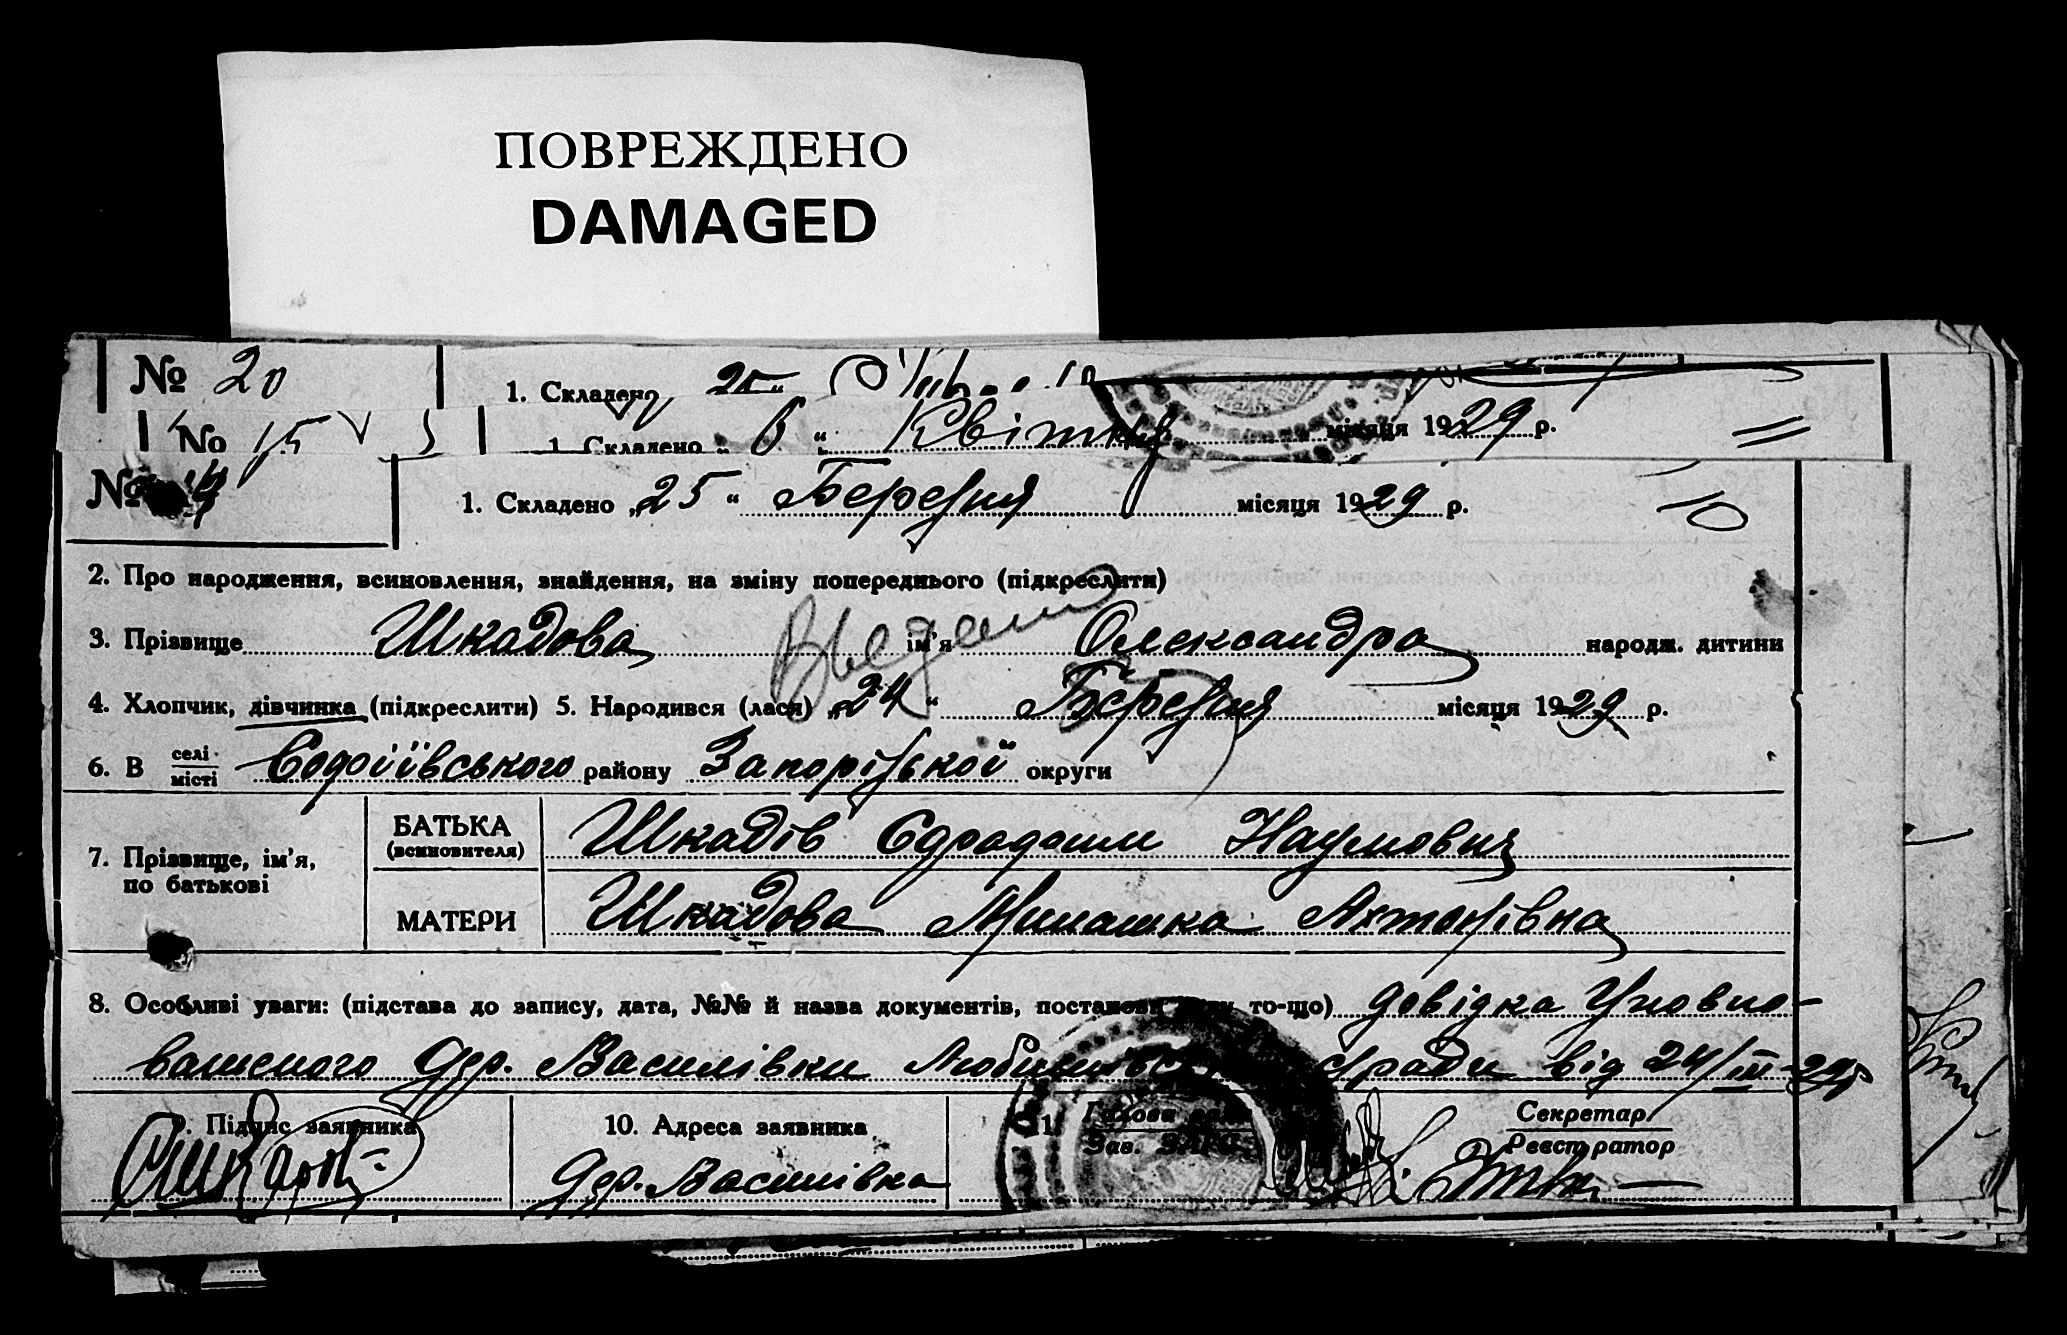 ПОВРЕЖДЕНО
DAMAGED
№ 20
1. Складено 25 "
№ 15
1. Складено „ 6 " Квітня місяця 1929 р.
№
1. Складено „25" Березня місяця 1929 р.
10
2. Про народження, всиновлення, знайдення, на зміну попереднього (підкреслити)
3. Прізвище Шкадова ім'я Олександра народж. дитини
4. Хлопчик, дівчинка (підкреслити) 5. Народився (лася) „24" Березня місяця 1929 р.
6. В селі місті району Запоріжської округи
7. Прізвище, ім'я, по батькові
БАТЬКА (всиновителя) Шкадів Наумович
МАТЕРИ Шкадова
8. Особливі уваги: (підстава до запису, дата, №№ й назва документів, постанови то-що) довідка Уповно-
важеного дер. Василівки від 24/III-29р
Підпис заявника
10. Адреса заявника
дер. Василівка
11
Голова
Зав. ЗАГС
Секретар
Реєстратор